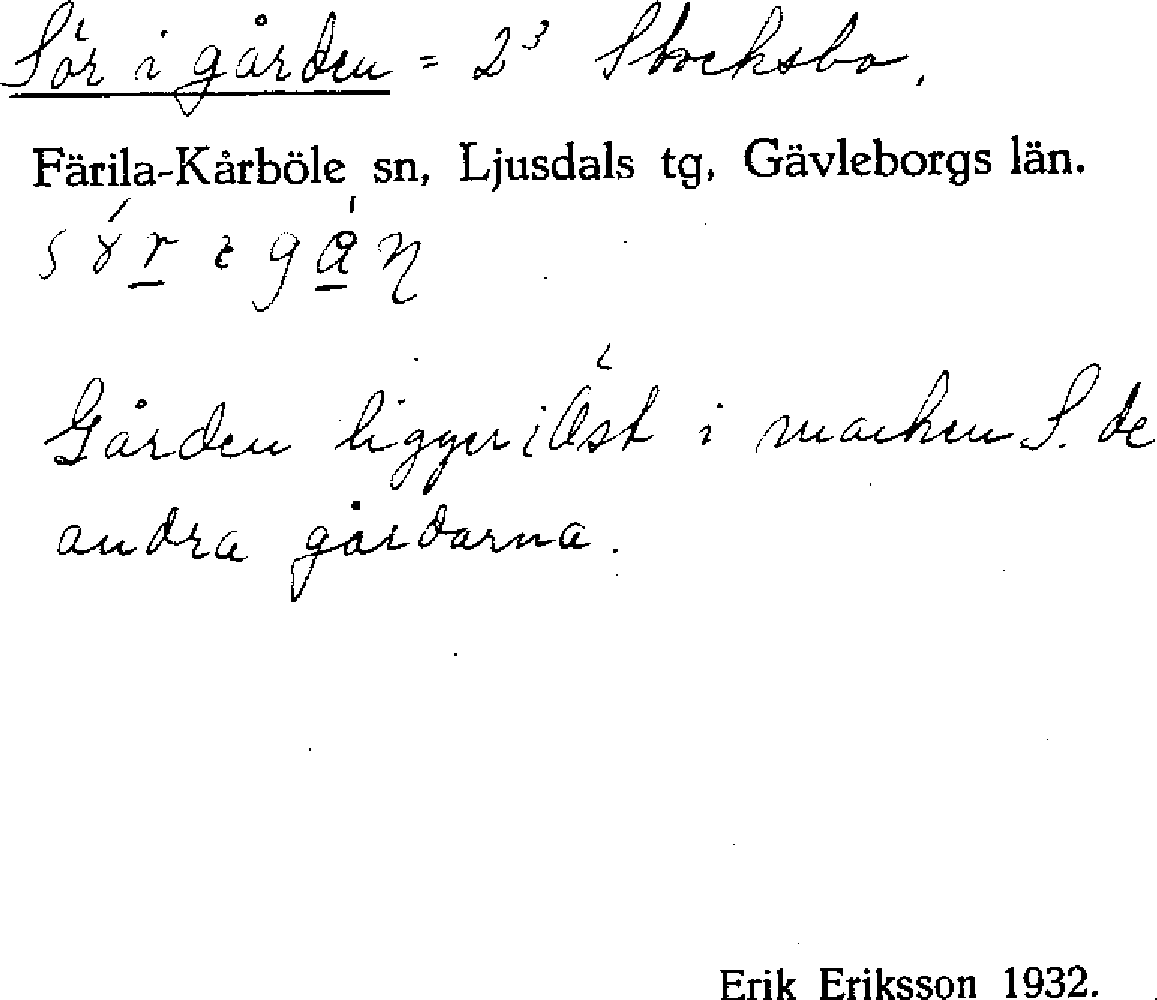 Sör i gården = 2³ Stocksbo.
Färila-Kårböle sn, Ljusdals tg, Gävleborgs län.
Gården ligger i Öst i marken S. de
andra gårdarna.
Erik Eriksson 1932.